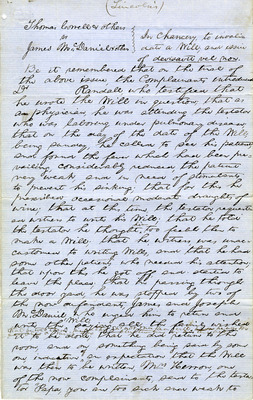 (Lincoln)
Thomas Cowell & others
vs
James McDaniel & others
In Chancery, to invali
date a Will, and issue
of devisavit vel non.
Be it remembered that on the trial of
the above issue the Complainants introduced
Dr. Randall who testified that
he wrote the Will in question, that as
a physician he was attending the testator
who was laboring under pulmonary disease,
that on the day of the date of the Will,
being Sunday, he called to see his patient,
and found the fever which had been pre-
vailing considerably reduced, the patient
very weak and in need of stimulants
to prevent his sinking, that for this he
prescribed occasional moderate draughts of
wine, that at the time the testator
witness to write his Will, that he told
the testator he thought, too feeble then to
make a Will, that he witness was unac-
customed to writing Wills, and that he had
some other patients who needed his attention,
that upon this he got off and started to
leave the place, that he passing through
the door yard he was stopped by two of
the most of James and Joseph
McDaniel, who urged him to return and
write the Will
room, and on something being said by some
one, indicative of an expectation that the Will
was then to be written, Mrs. Herron, one
of the now complainants, said to the testa-
tor Papa, you are too sick and weak to